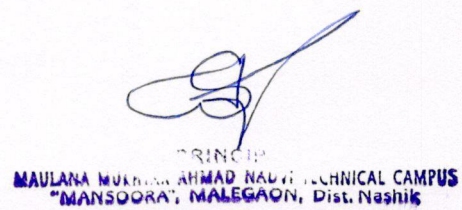 PRINCIP
MAULANA AHMAD TECHNICAL CAMPUS
"MANSOORA", MALEGAON, Dist. Nashik